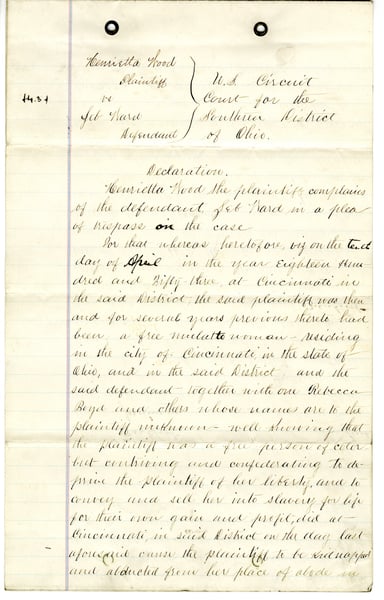 Henrietta Wood
Plaintiff
1431
vs
Zeb Ward
Defendant
U.S. Circuit
Court for the
Southern District
of Ohio.
Declaration.
Henrietta Wood the plaintiff complains
of the defendant, Zeb Ward in a plea
of trespass on the case
For that whereas, heretofore, viz on the tenth
day of April in the year Eighteen Hun-
dred and Fifty-three, at Cincinnati in
the said District, the said plaintiff was then
and for several years previous thereto had
been, a free mulatto woman - residing
in the city of Cincinnati, in the state of
Ohio, and in the said District; and the
said defendant together with one Rebecca
Boyd and others whose names are to the
plaintiff unknown - well knowing that
the plaintiff was a free person of color
but contriving and confederating to de-
prive the plaintiff of her liberty, and to
convey and sell her into slavery for life
for their own gain and profit, did at
Cincinnati, in said District on the day last
aforesaid cause the plaintiff to be kidnapped
and abducted from her place of abode in